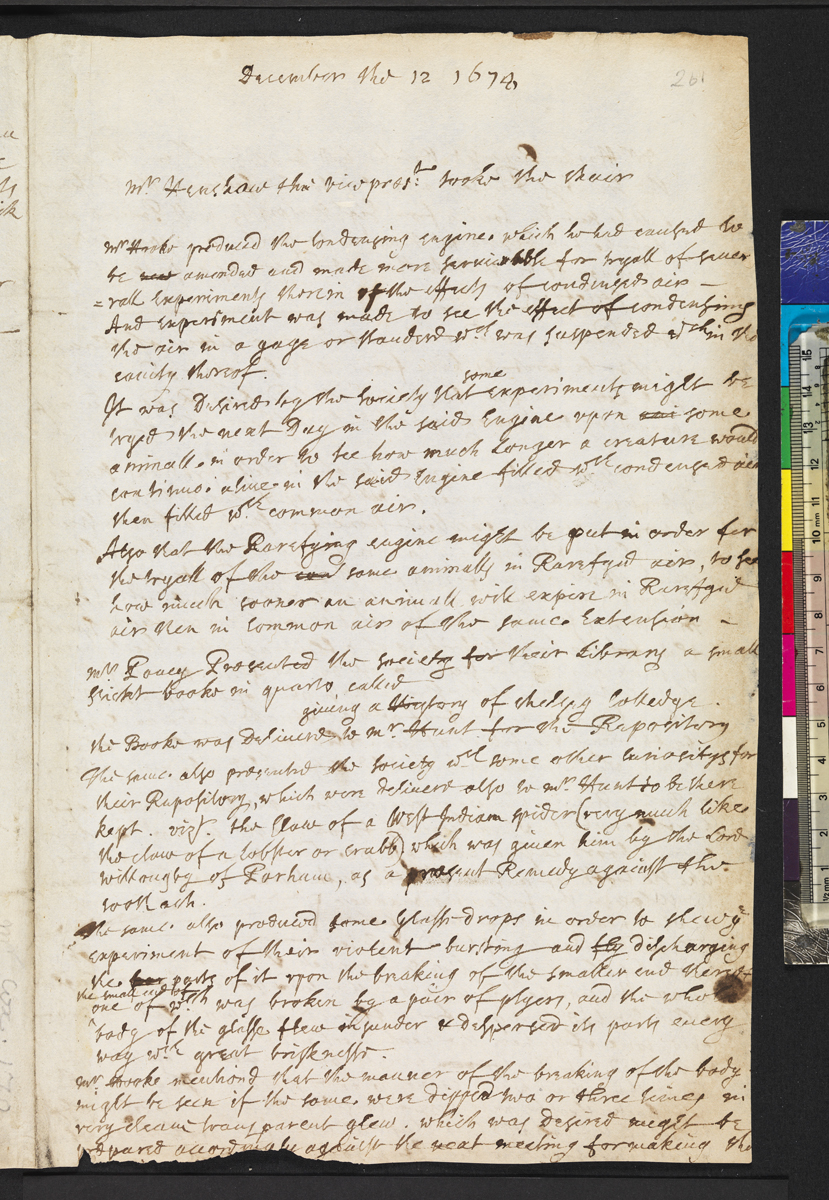 December the 12 1674
261
Mr Henshaw the vicepresit tooke the Chair
Mr Hooke produced the Condensing engine. which he had caused to
be amended and made more servicable for tryall of sever
=rall Experiments therein of the effects of condensed air -
And Experiment was made to see the effect of condensing
the air in a gage or standerd wch was suspended within the
cavity thereof.
It was Desired by the Society that some experiments might be
tryed the next Day in the said Engine upon some
animall. in order to see how much Longer a creature would
continue alive in the said Engine filled wth condensed air
then filled wth common air.
Also that the Rarefying engine might be put in order for
the tryall of the same animalls in Rarefyed air, to see
how much sooner an animall will expire in Rarefyed
air then in Common air of the same Extension -
Mr Povey Presented the society for their Library a small
booke in quarto called
giving a History of Chelsey Colledge.
the Booke was Delivered to Mr Hunt for the Repository
The same also presented the society wth some other Curiositys for
their Repository, which were delivered also to Mr Hunt to be there
kept. vizt. the Claw of a West Indian spider (very much like
the claw of a Lobster or Crabb) which was given him by the Lord
willougby of Parham, as a present Remedy against the
tooth ach.
the same also produced some Glasse-drops in order to shew ye
experiment of their violent bursting and discharging
the parts of it upon the breaking of the smaller end thereof
the small end of
one of wch was broken by a pair of plyers, and the whole
body of the glasse flew insunder & dispersed its parts every
way wth great brisknesse.
Mr Hooke mentiond that the manner of the breaking of the body
might be seen if the same were dipped two or three times in
very cleane transparent glew. which was desired might be
prepared accordingly against the next meeting for making the